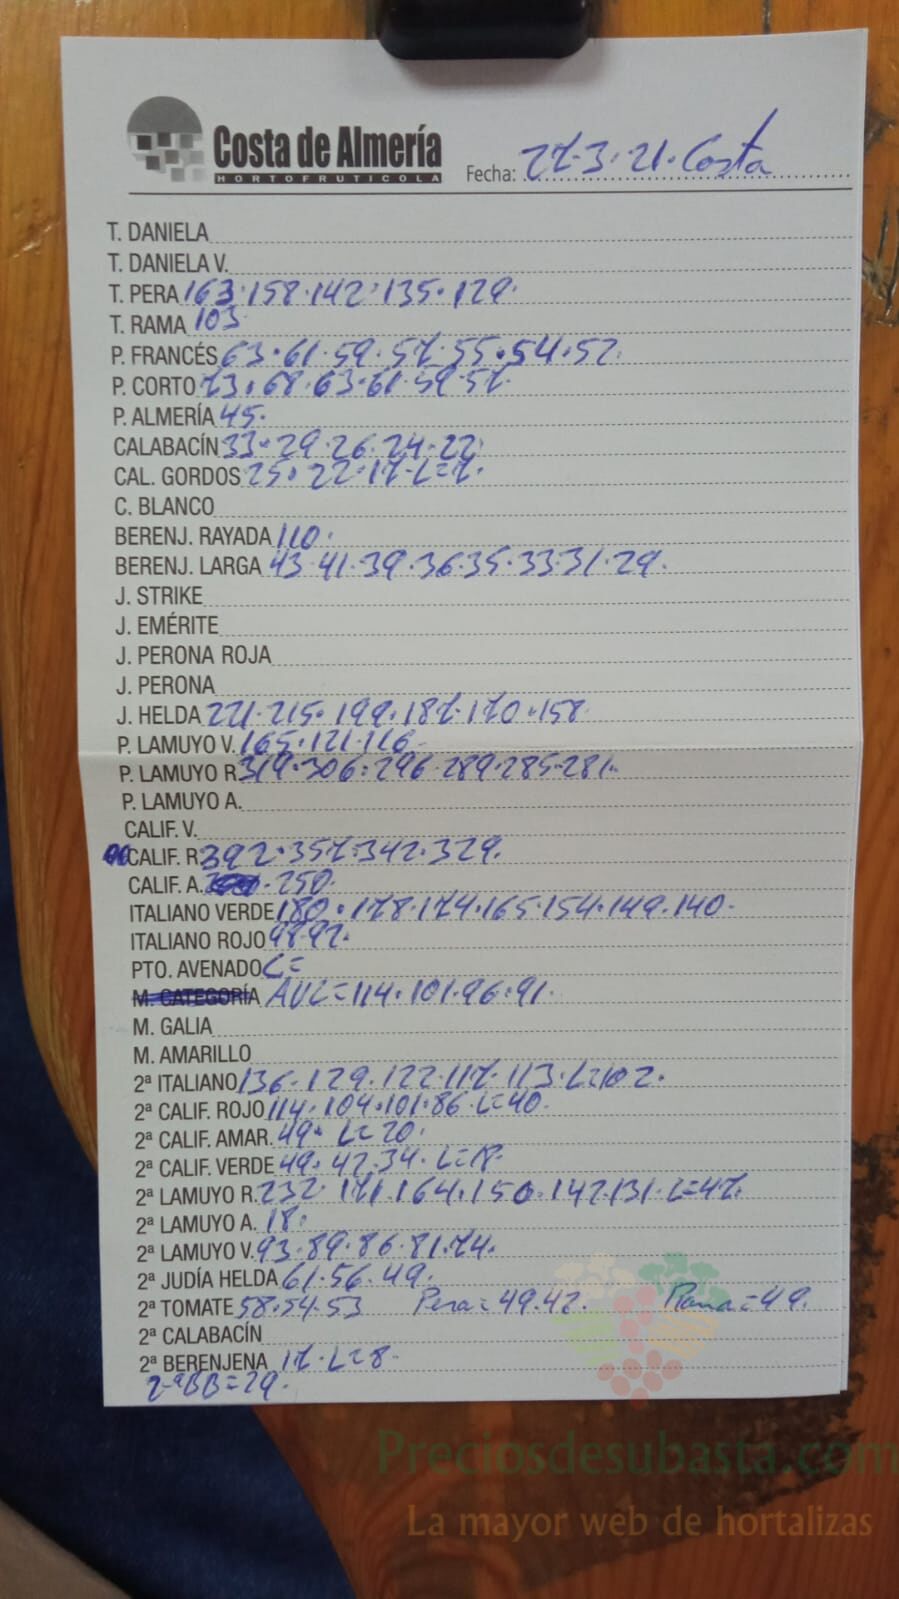 Costa de Almería
HORTOFRUTICOLA
Fecha: 27.3.21. Costa
T. DANIELA
T. DANIELA V.
T. PERA 163.158.142.135.129.
T. RAMA 103
P. FRANCÉS 63.61.59.57.55.54.52.
P. CORTO 73.68.63.61.59.57.
P. ALMERÍA 45.
CALABACÍN 33.29.26.24.22.
CAL. GORDOS 25.22.17.L=7.
C. BLANCO
BERENJ. RAYADA 110.
BERENJ. LARGA 43.41.39.36.35.33.31.29.
J. STRIKE
J. EMÉRITE
J. PERONA ROJA
J. PERONA
J. HELDA 221.215.199.187.170.158
P. LAMUYO V. 165.121.116
P. LAMUYO R. 319.306.296.289.285.281.
P. LAMUYO A.
CALIF. V.
CALIF. R. 392.357.342.329.
CALIF. A. 250.
ITALIANO VERDE 180.178.174.165.154.149.140.
ITALIANO ROJO 92.
PTO. AVENADO L=
M. CATEGORÍA AVL=114.101.96.91.
M. GALIA
M. AMARILLO
2ª ITALIANO 136.129.122.117.113.L=102.
2ª CALIF. ROJO 114.104.101.86.L=40.
2ª CALIF. AMAR. 49. L=20.
2ª CALIF. VERDE 49.42.34.L=18.
2ª LAMUYO R. 232.171.164.150.142.131.L=47.
2ª LAMUYO A. 18.
2ª LAMUYO V. 93.89.86.81.74.
2ª JUDÍA HELDA 61.56.49.
2ª TOMATE 58.54.53 Pera=49.42. Rama=49.
2ª CALABACÍN
2ª BERENJENA 17.L=8.
2ªBB=29.
Preciosdesubasta.com
La mayor web de hortalizas